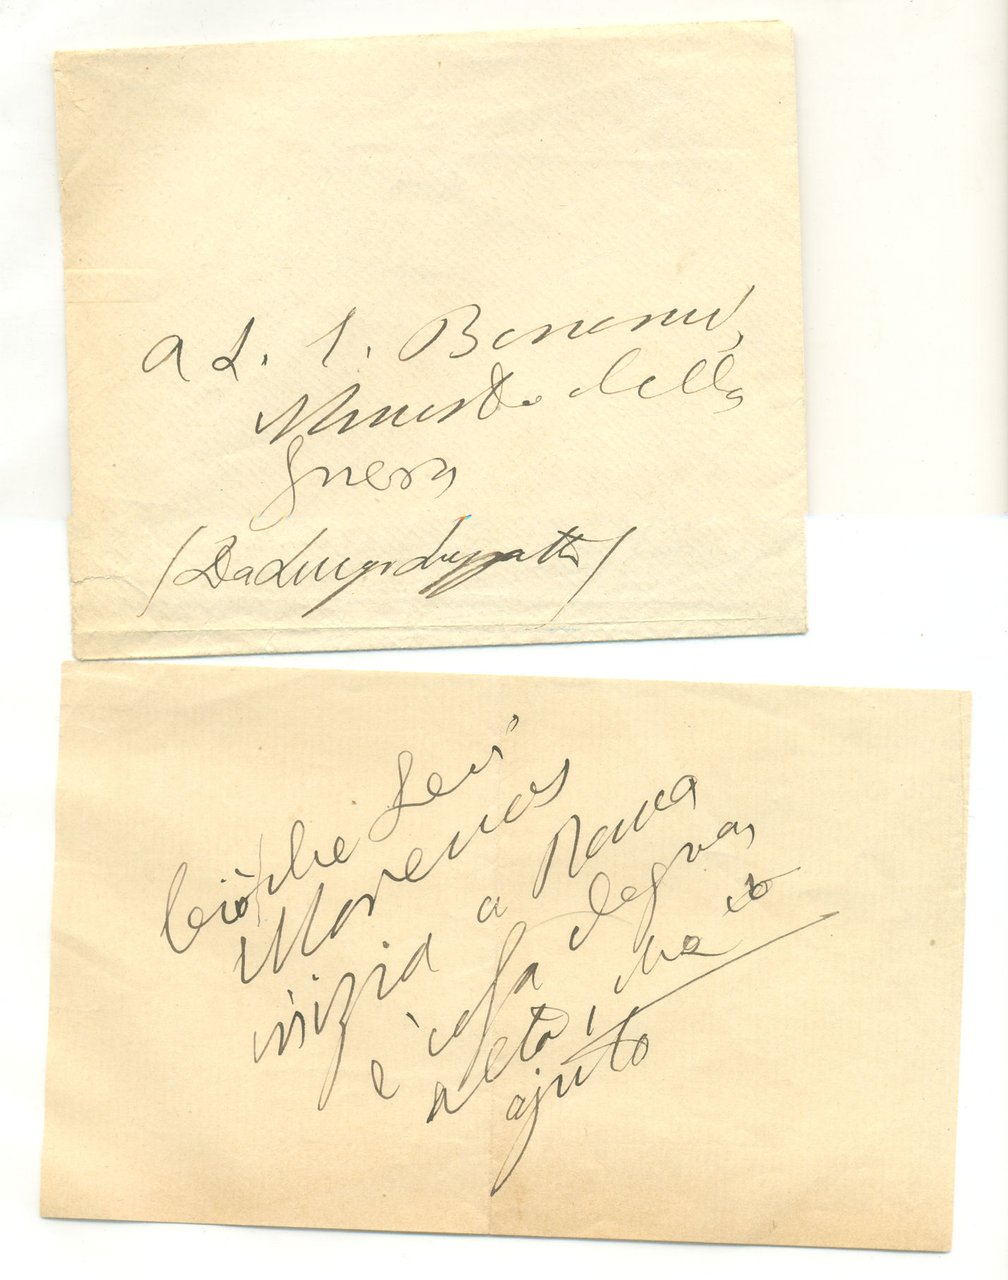 A L. S. Bonomi,
Ministro della
Guerra
(Da Luigi Luzzatti)
Ciò che Levi
Morenos
inizia a Roma
è cosa degna
aieto, ma
ajuto